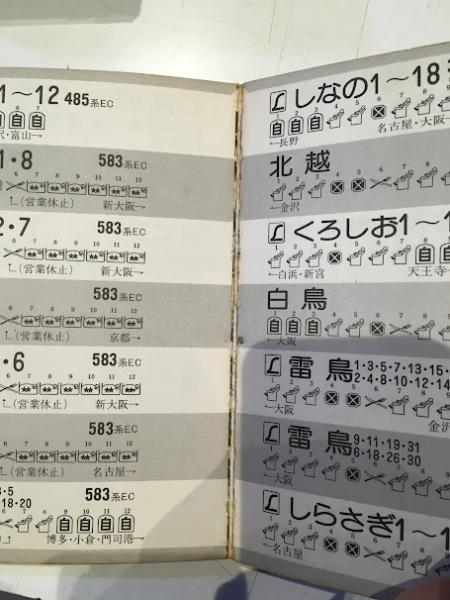 1～12 485系EC
沢・富山→
1・8 583系EC
(営業休止) 新大阪→
2・7 583系EC
(営業休止) 新大阪→
583系EC
(営業休止) 京都→
・6 583系EC
(営業休止) 新大阪→
583系EC
(営業休止) 名古屋→
3・5
18・20 583系EC
自 自 自 自
博多・小倉・門司港→
L しなの1～18
自 自 自
←長野 名古屋・大阪→
北越
←金沢
L くろしお1～1
自 自
←白浜・新宮 天王寺
白鳥
自 自 自
←大阪
L 雷鳥 1・3・5・7・13・15
2・4・8・10・12・14
←大阪 金沢
L 雷鳥 9・11・19・31
6・18・26・30
←大阪
L しらさぎ1～1
←名古屋